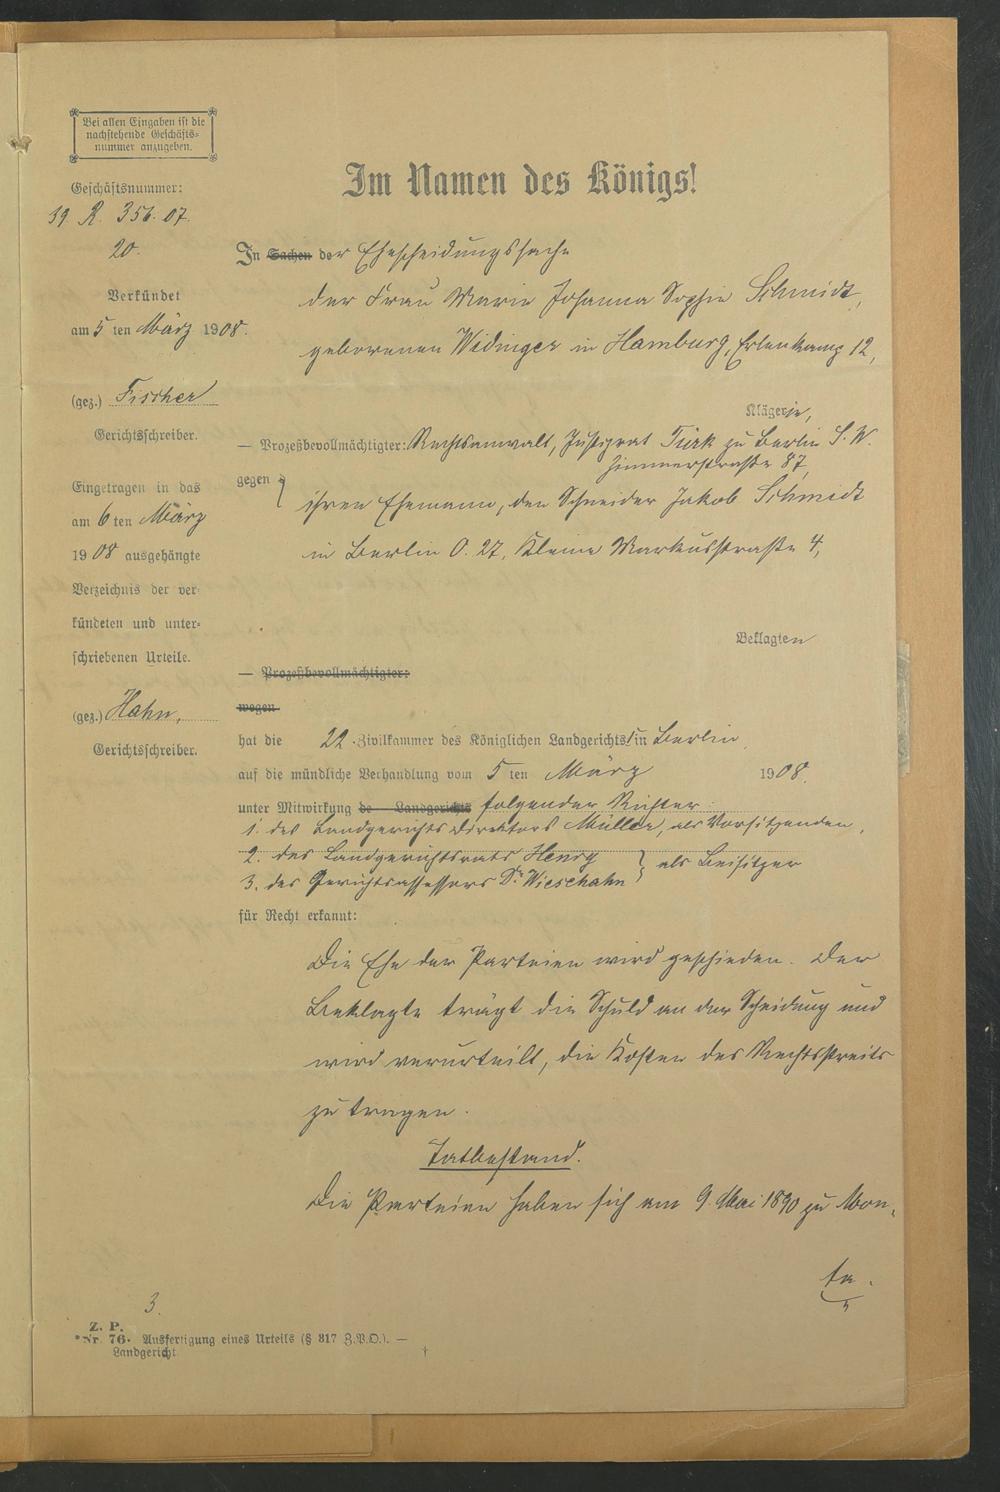 Bei allen Eingaben ist die
nachstehende Geschäfts-
nummer anzugeben.
Geschäftsnummer:
39. R. 356. 07.
20.
Verkündet
am 5 ten März 1908.
(gez.) Fischer
Gerichtsschreiber.
Eingetragen in das
am 6 ten März
1908 ausgehängte
Verzeichnis der ver-
kündeten und unter-
schriebenen Urteile.
(gez.) Hahn,
Gerichtsschreiber.
Im Namen des Königs!
In Sachen der Ehescheidungssache
der Frau Marie Johanna Sophie Schmidt,
geborenen Widinger in Hamburg, Erlenkamp 12,
Klägerin,
— Prozeßbevollmächtigter: Rechtsanwalt, Justizrat Türk zu Berlin S. W.
Zimmerstraße 87,
gegen
ihren Ehemann, den Schneider Jakob Schmidt
in Berlin O. 27, Kleine Markusstraße 4,
Beklagten
— Prozeßbevollmächtigter:
wegen
hat die 22. Zivilkammer des Königlichen Landgerichts I in Berlin
auf die mündliche Verhandlung vom 5 ten März 1908.
unter Mitwirkung de Landgerichts folgender Richter:
1. des Landgerichtsdirektors Müller, als Vorsitzenden,
2. des Landgerichtsrats Henry
3. des Gerichtsassessors Dr. Wieschahn } als Beisitzer
für Recht erkannt:
Die Ehe der Parteien wird geschieden. Der
Beklagte trägt die Schuld an der Scheidung und
wird verurteilt, die Kosten des Rechtsstreits
zu tragen.
Tatbestand.
Die Parteien haben sich am 9. Mai 1890 zu Mon-
3.
Z. P.
*Nr. 76. Ausfertigung eines Urteils (§ 317 Z.P.O.). —
Landgericht